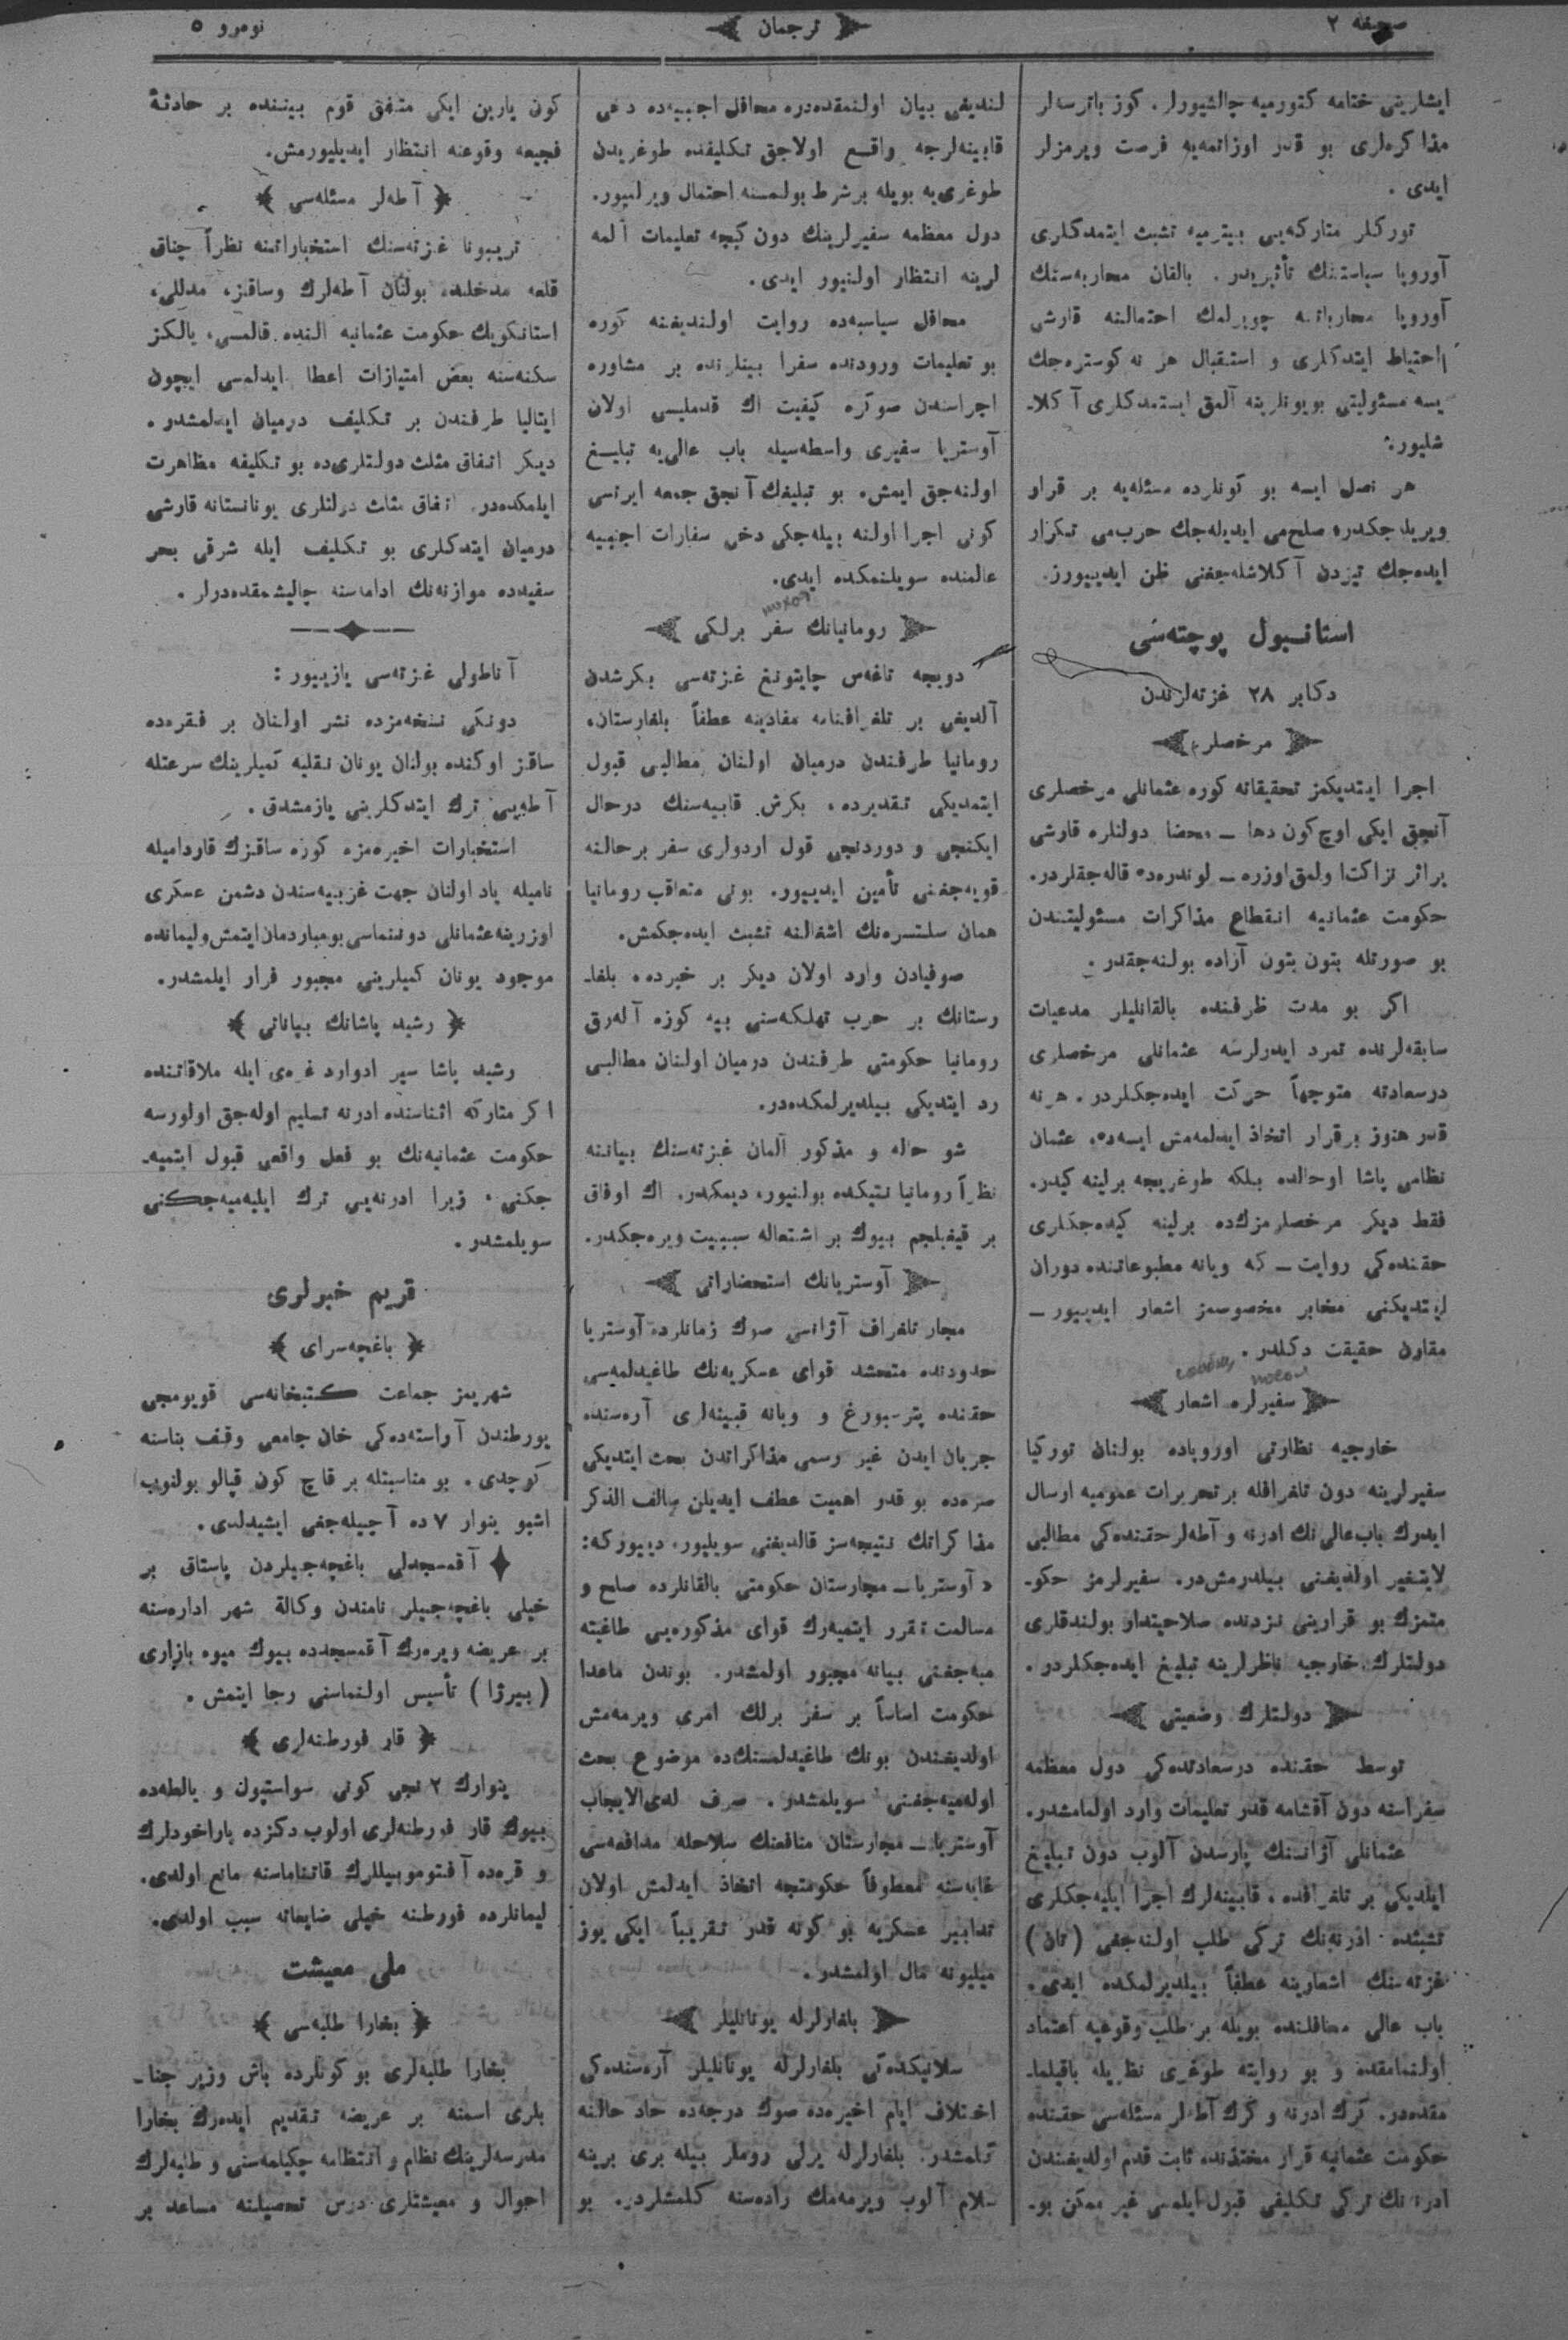 صحیفه ٢
ترجمان
نومرو ٥
ایشلرینی ختامه کتورمیه چالشیورلر. کوز باترسه‌لر
مذاکره‌لری بو قدر اوزاتمه‌یه فرصت ویرمزلر
ایدی .
تورکلر متارکه‌یی بیترمیه تشبث ایتمدکلری
آوروپا سیاستنك تأثیریدر . بالقان محاربه‌سنك
آوروپا محارباتنه چویرلمك احتمالنه قارشی
احتیاط ایتدکلری و استقبال هر نه کوستره‌جك
یسه مسئولیتی بویونلرینه آلمق ایستمدکلری آکلا-
شلیور.
هر نصل ایسه بو کونلرده مسئله‌یه بر قرار
ویریله‌جکدر، صلح‌می ایدیله‌جك حرب‌می تکرار
ایده‌جك تیزدن آکلاشله‌جغنی ظن ایدییورز.
استانبول پوچته‌سی
دکابر ٢٨ غزته‌لرندن
مرخصلر
اجرا ایتدیکمز تحقیقاته کوره عثمانلی مرخصلری
آنجق ایکی اوچ کون دها ــ محضا دولتلره قارشی
براثر نزاکت اولمق اوزره ــ لوندره‌ده قاله‌جقلردر.
حکومت عثمانیه انقطاع مذاکرات مسئولیتندن
بو صورتله بتون بتون آزاده بولنه‌جقدر .
اکر بو مدت ظرفنده بالقانلیلر مدعیات
سابقه‌لرنده تمرد ایدرلرسه عثمانلی مرخصلری
درسعادته متوجهاً حرکت ایده‌جکلردر . هرنه
قدر هنوز برقرار اتخاذ ایدلمه‌مش ایسه‌ده، عثمان
نظامی پاشا اوحالده بلکه طوغریجه برلینه کیدر.
فقط دیکر مرخصلرمزك‌ده برلینه کیده‌جکلری
حقنده‌کی روایت ــ که ویانه مطبوعاتنده دوران
ایتدیکنی مخابر مخصوصمز اشعار ایدییور ــ
مقارن حقیقت دکلدر .
سفیرلره اشعار
خارجیه نظارتی اوروپاده بولنان تورکیا
سفیرلرینه دون تلغرافله بر تحریرات عمومیه ارسال
ایدرك باب‌عالی‌نك ادرنه و آطه‌لر حقنده‌کی مطالبی
لایتغیر اولدیغنی بیلدرمش‌در. سفیرلرمز حکو-
متمزك بو قرارینی نزدنده صلاحیتدار بولندقلری
دولتلرك خارجیه ناظرلرینه تبلیغ ایده‌جکلردر .
دولتلرك وضعیتی
توسط حقنده درسعادتده‌کی دول معظمه
سفراسنه دون آقشامه قدر تعلیمات وارد اولمامشدر.
عثمانلی آژانسنك پارسدن آلوب دون تبلیغ
ایلدیکی بر تلغرافده، قابینه‌لرك اجرا ایلیه‌جکلری
تشبثده ادرنه‌نك ترکی طلب اولنه‌جغی (تان)
غزته‌سنك اشعارینه عطفاً بیلدیرلمکده ایدی.
باب عالی محافلنده بویله بر طلب وقوعیه اعتماد
اولنمامقده و بو روایته طوغری نظریله باقیلما-
مقده‌در. کرك ادرنه و کرك آطه‌لر مسئله‌سی حقنده
حکومت عثمانیه قرار متخذنده ثابت قدم اولدیغندن
ادرنه‌نك ترکی تکلیفی قبول ایلمسی غیر ممکن بو-
لندیغی بیان اولنمقده‌در، محافل اجنبیه‌ده دخی
قابینه‌لرجه واقع اولاجق تکلیفده طوغریدن
طوغری‌یه بویله بر شرط بولنمسنه احتمال ویرلنیور.
دول معظمه سفیرلرینك دون کیجه تعلیمات آلمه
لرینه انتظار اولنیور ایدی.
محافل سیاسیه‌ده روایت اولندیغنه کوره
بو تعلیمات ورودنده سفرا بینلرنده بر مشاوره
اجراسندن صوکره کیفیت اك قدملیسی اولان
آوستریا سفیری واسطه‌سیله باب عالی‌یه تبلیغ
اولنه‌جق ایمش، بو تبلیغك آنجق جمعه ایرتسی
کونی اجرا اولنه بیله‌جکی دخی سفارات اجنبیه
عالمنده سویلنمکده ایدی.
رومانیانك سفر برلکی
دویچه تاغه‌س چایتونغ غزته‌سی بکرشدن
آلدیغی بر تلغرافنامه مفادینه عطفاً بلغارستان،
رومانیا طرفندن درمیان اولنان مطالبی قبول
ایتمدیکی تقدیرده، بکرش قابیه‌سنك درحال
ایکنجی و دوردنجی قول اردولری سفر برحالنه
قویه‌جغنی تأمین ایدییور. بونی متعاقب رومانیا
همان سلستره‌نك اشغالنه تشبث ایده‌جکمش.
صوفیادن وارد اولان دیکر بر خبرده، بلغا-
رستانك بر حرب تهلکه‌سنی بیه کوزه آله‌رق
رومانیا حکومتی طرفندن درمیان اولنان مطالبی
رد ایتدیکی بیلدیرلمکده‌در.
شو حاله و مذکور آلمان غزته‌سنك بیاننه
نظراً رومانیا تتیکده بولنیور، دیمکدر. اك اوفاق
بر قیغیلجم بیوك بر اشتعاله سببیت ویره‌جکدر.
آوستریانك استحضاراتی
مجار تلغراف آژانسی صوك زمانلرده آوستریا
حدودنده متحشد قوای عسکریه‌نك طاغیدلمه‌سی
حقنده پترسبورغ و ویانه قبینه‌لری آره‌سنده
جریان ایدن غیر رسمی مذاکراتدن بحث ایتدیکی
صره‌ده بو قدر اهمیت عطف ایدیلن سالف الذکر
مذاکراتك نتیجه‌سز قالدیغنی سویلیور، دییورکه:
« آوستریا ــ مجارستان حکومتی بالقانلرده صلح و
مسالمت تقرر ایتمیه‌رك قوای مذکوره‌یی طاغیته
میه‌جغنی بیانه مجبور اولمشدر. بوندن ماعدا
حکومت اساساً بر سفر برلك امری ویرمه‌مش
اولدیغندن بونك طاغیدلمسنك‌ده موضوع بحث
اوله‌میه‌جغنی سویلمشدر . صرف لدی‌الایجاب
آوستریا ــ مجارستان منافعنك سلاحله مدافعه‌سی
غایه‌سنه معطوفاً حکومتجه اتخاذ ایدلمش اولان
تدابیر عسکریه بو کونه قدر تقریباً ایکی یوز
میلیونه مال اولمشدر .
بلغارلرله یونانلیلر
سلانیکده‌کی بلغارلرله یونانلیلر آره‌سنده‌کی
اختلاف ایام اخیره‌ده صوك درجه‌ده حاد حالنه
کلمشدر. بلغارلرله یرلی روملر بیله بری برینه
سلام آلوب ویرمه‌مك راده‌سنه کلمشلردر. بو
کون یارین ایکی متفق قوم بیننده بر حادثهٔ
فجیعه وقوعنه انتظار ایدیلیورمش.
آطه‌لر مسئله‌سی
تریبونا غزته‌سنك استخباراتنه نظراً چناق
قلعه مدخلنده بولنان آطه‌لرك وساقز، مدللی،
استانکویك حکومت عثمانیه النده قالمسی، یالکز
سکنه‌سنه بعض امتیازات اعطا ایدلمسی ایچون
ایتالیا طرفندن بر تکلیف درمیان ایدلمشدر .
دیکر اتفاق مثلث دولتلری‌ده بو تکلیفه مظاهرت
ایلمکده‌در. اتفاق مثلث دولتلری یونانستانه قارشی
درمیان ایتدکلری بو تکلیف ایله شرقی بحر
سفیدده موازنه‌نك ادامه‌سنه چالیشمقده‌درلر .
آناطولی غزته‌سی یازییور :
دونکی نسخه‌مزده نشر اولنان بر فقره‌ده
ساقز اوکنده بولنان یونان نقلیه کمیلرینك سرعتله
آطه‌یی ترك ایتدکلرینی یازمشدق .
استخبارات اخیره‌مزه کوره ساقزك قاردامیله
نامیله یاد اولنان جهت غربیه‌سندن دشمن عسکری
اوزرینه عثمانلی دوننماسی بومباردمان ایتمش ولیمانده
موجود یونان کمیلرینی مجبور فرار ایلمشدر.
رشید پاشانك بیاناتی
رشید پاشا سیر ادوارد غره‌ی ایله ملاقاتنده
اکر متارکه اثناسنده ادرنه تسلیم اوله‌جق اولورسه
حکومت عثمانیه‌نك بو فعل واقعی قبول ایتمیه-
جکنی، زیرا ادرنه‌یی ترك ایلیه‌میه‌جکنی
سویلمشدر .
قریم خبرلری
باغچه‌سرای
شهریمز جماعت کتبخانه‌سی قویومجی
یورطندن آراسته‌ده‌کی خان جامعی وقف بناسنه
کوچدی. بو مناسبتله بر قاچ کون قپالو بولنوب
اشبو ینوار ٧ ده آچیله‌جغی ایشیدلدی.
آقمسجدلی باغچه‌جیلردن پاستاق بر
خیلی باغچه‌جیلر نامندن وکالة شهر اداره‌سنه
بر عریضه ویره‌رك آقمسجدده بیوك میوه بازاری
(بیرژا) تأسیس اولنماسنی رجا ایتمش .
قار فورطنه‌لری
ینوارك ٢ نجی کونی سواستپول و یالطه‌ده
بیوك قار فورطنه‌لری اولوب دکزده پاراخودلرك
و قره‌ده آفتوموبیللرك قاتناماسنه مانع اولدی.
لیمانلرده فورطنه خیلی ضایعاته سبب اولدی.
ملی معیشت
بخارا طلبه‌سی
بخارا طلبه‌لری بو کونلرده باش وزیر جنا-
بلری اسمنه بر عریضه تقدیم ایده‌رك بخارا
مدرسه‌لرینك نظام و انتظامه چکیلمه‌سنی و طلبه‌لرك
احوال و معیشتلری درس تحصیلنه مساعد بر